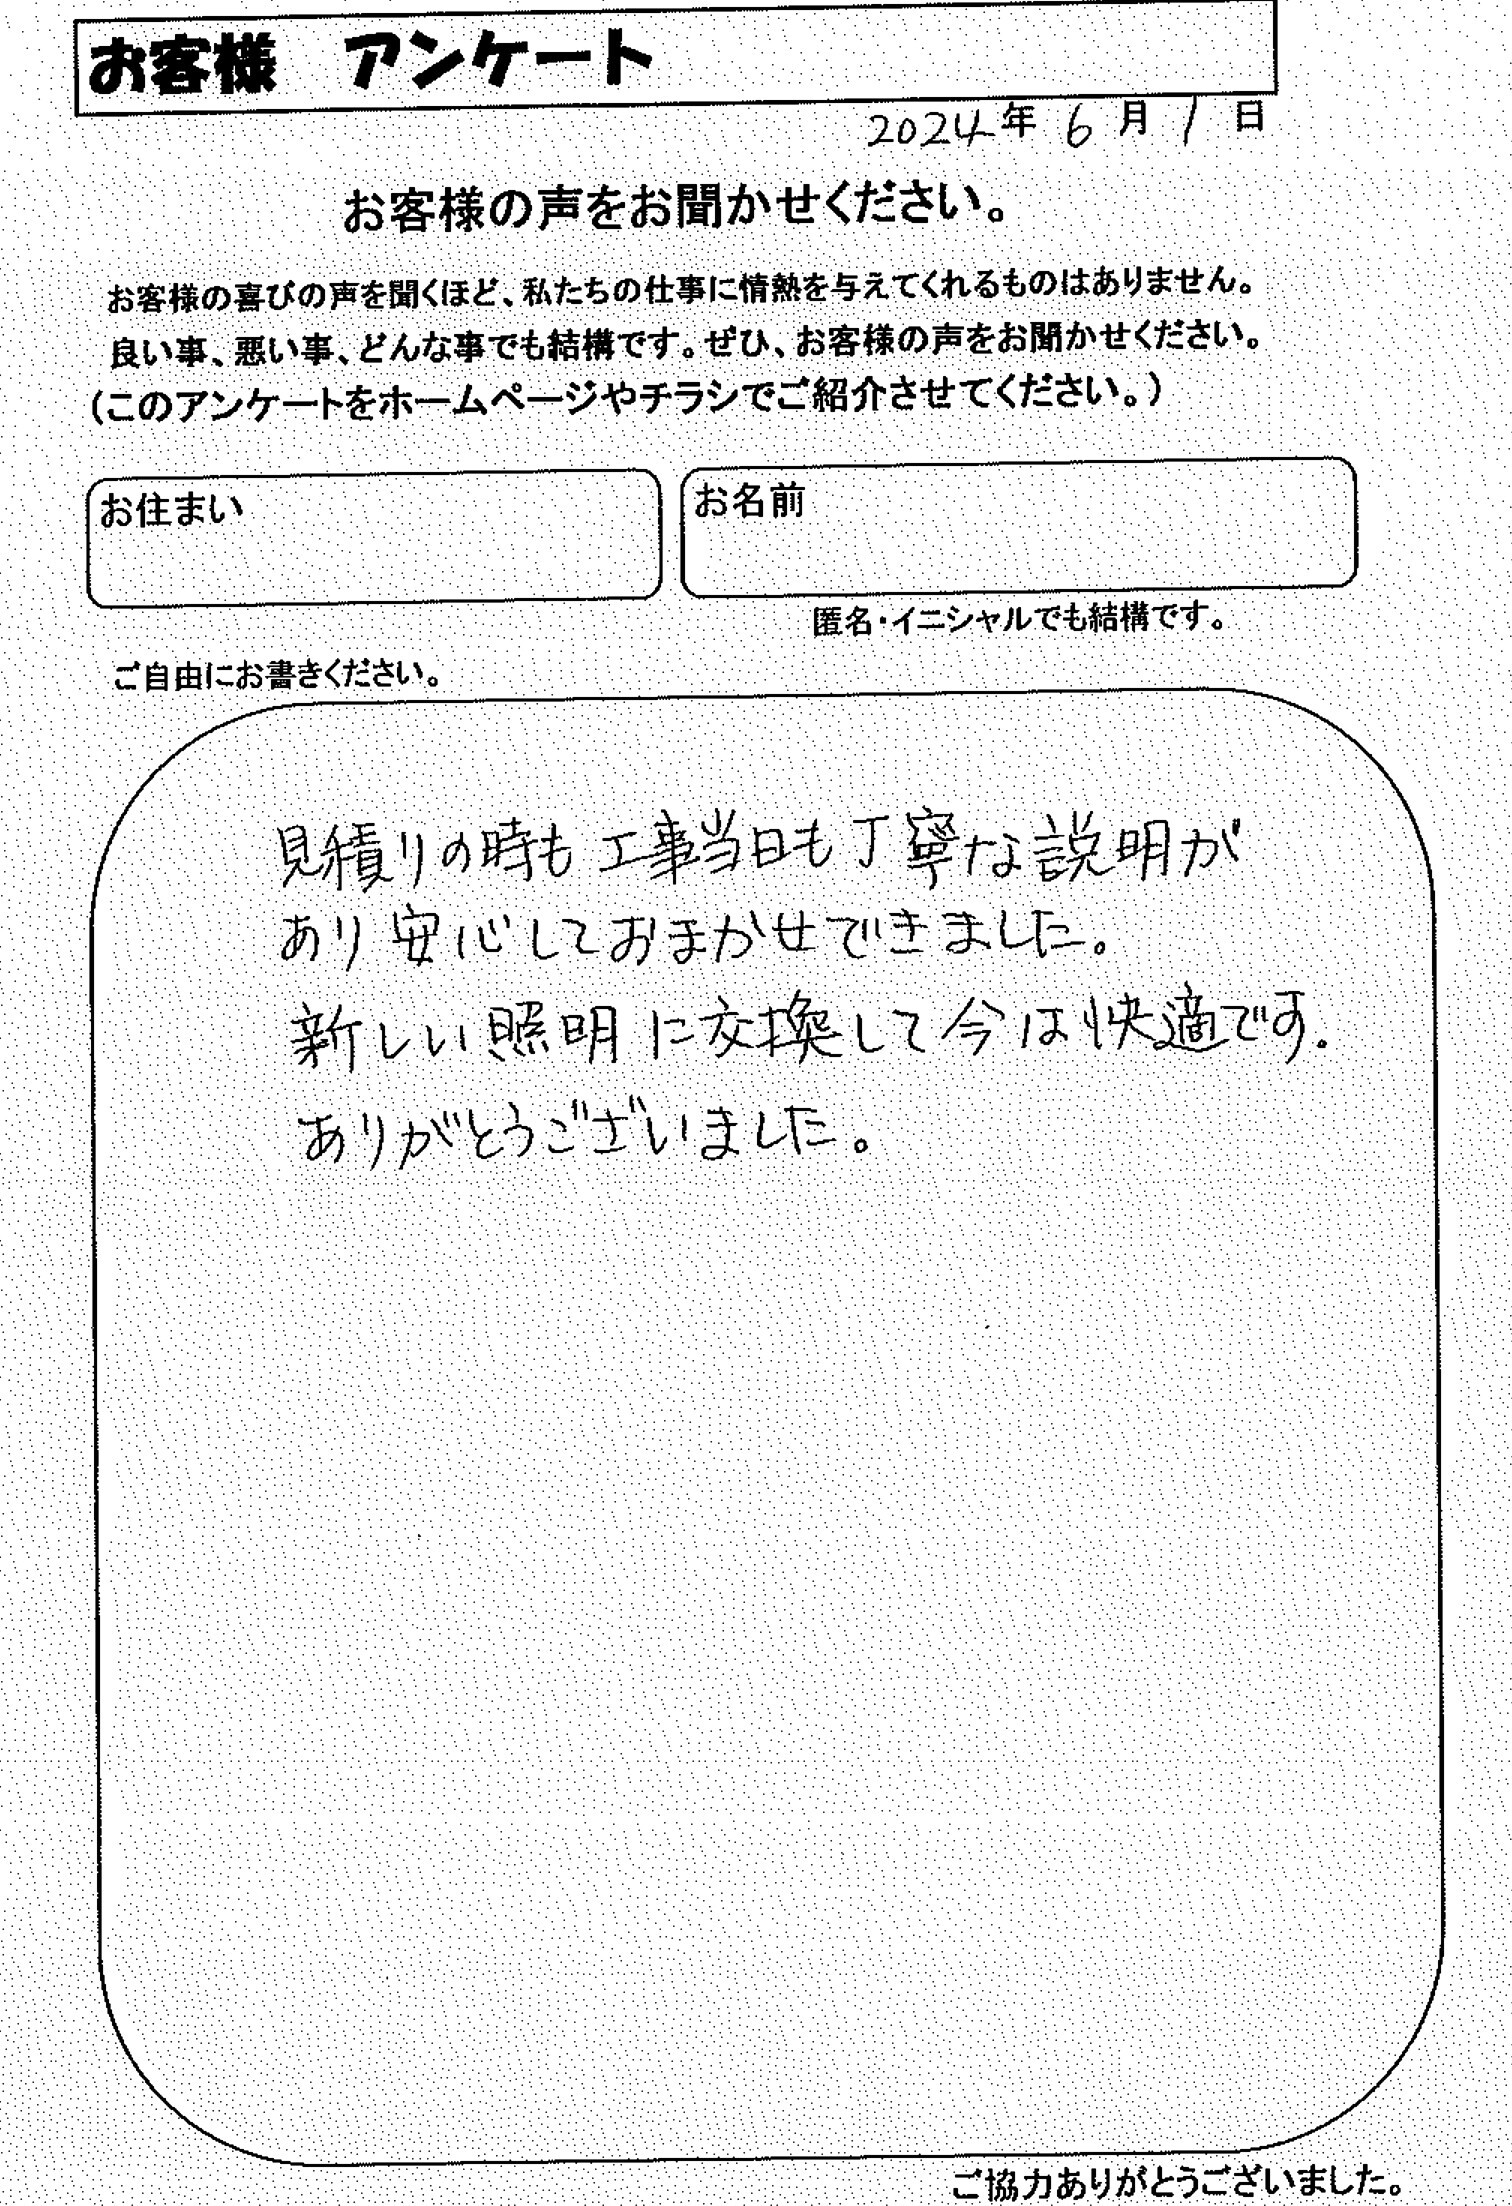 お客様　アンケート
2024年 6月 1日
お客様の声をお聞かせください。
お客様の喜びの声を聞くほど、私たちの仕事に情熱を与えてくれるものはありません。
良い事、悪い事、どんな事でも結構です。ぜひ、お客様の声をお聞かせください。
(このアンケートをホームページやチラシでご紹介させてください。)
お住まい　お名前
匿名・イニシャルでも結構です。
ご自由にお書きください。
見積りの時も工事当日も丁寧な説明が
あり安心しておまかせできました。
新しい照明に交換して今は快適です.
ありがとうございました。
ご協力ありがとうございました。